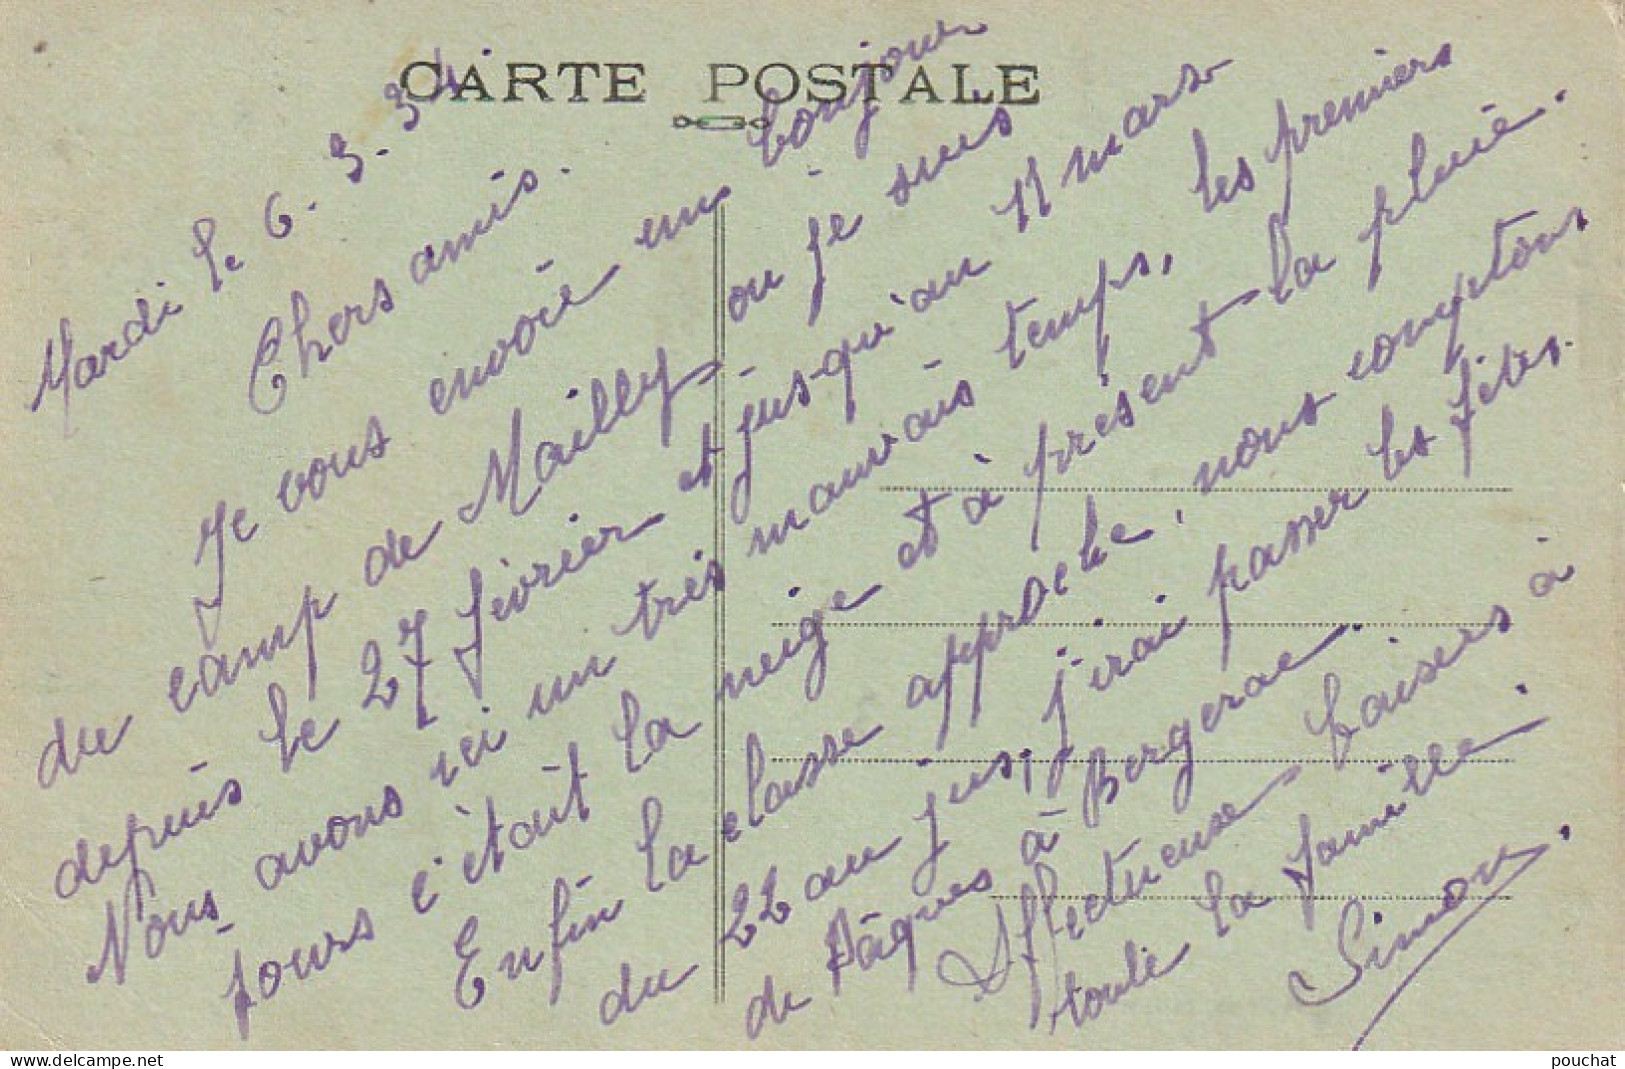 CARTE POSTALE
Mardi le 6. 3. 34.
Chers amis.
Je vous envoie un bonjour
du camp de Mailly ou je suis
depuis le 27 février et jusqu'au 11 mars
Nous avons ici un très mauvais temps, les premiers
jours c'était la neige et à présent la pluie.
Enfin la classe approche, nous comptons
du 22 au jus, j'irai passer les fêtes
de Pâques à Bergerac.
Affectueux baisers à
toute la famille.
Simon.
www.delcampe.net
pouchat